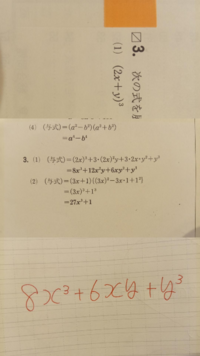 ☑3. 次の式を
(1) (2x+y)³
(4) (与式)=(a²−b²)(a²+b²)
=a⁴−b⁴
3. (1) (与式)=(2x)³+3・(2x)²y+3・2x・y²+y³
=8x³+12x²y+6xy²+y³
(2) (与式)=(3x+1){(3x)²−3x・1+1²}
=(3x)³+1³
=27x³+1
8x³+6xy+y³